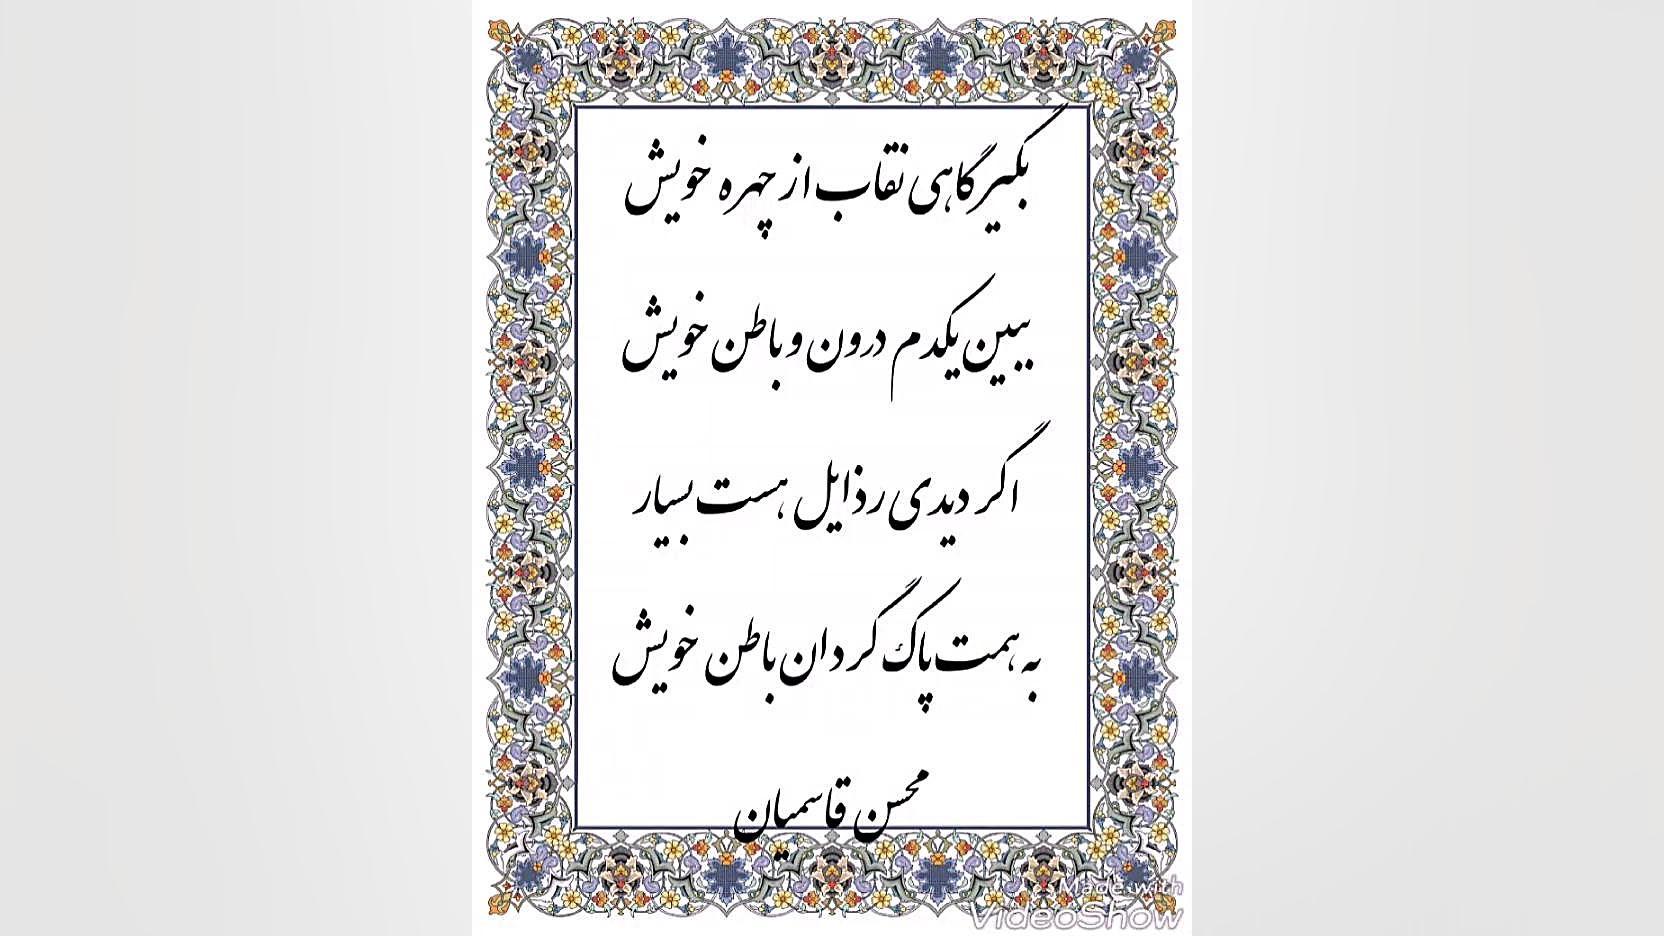 بگیر گاهی نقاب از چهره خویش
ببین یکدم درون و باطن خویش
اگر دیدی رذایل هست بسیار
به همت پاک گردان باطن خویش
محسن قاسمیان
Made with
VideoShow